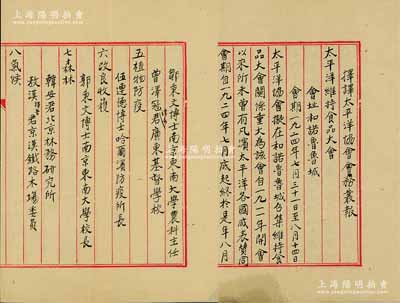 上海陽明拍賣
擇譯太平洋協會會務叢報
太平洋維持食品大會
會址和諾魯魯城
會期一九二四年七月三十一日至八月十四日
太平洋協會擬在和諾魯魯城召集維持食
品大會關係重大為該會自一九一一年開會
以來所未曾有凡濱太平洋各國咸表贊同
會期自一九二四年七月底起終於是年八月
鄒秉文博士南京東南大學農科主任
五植物防疫
曹澤冠君廣東基督學校
伍連德博士哈爾濱防疫所長
六改良收穫
郭秉文博士南京東南大學校長
七森林
韓安君北京林務研究所
君京漢鐵路木場委員
八氣候
上海陽明拍賣